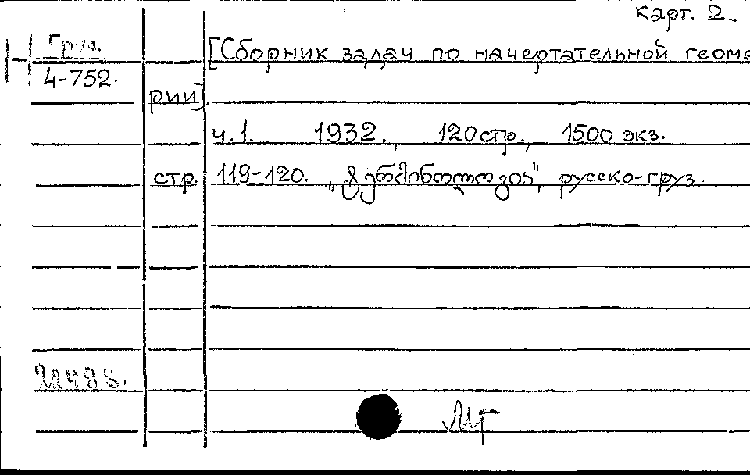 карт. 2.
Груз. [Сборник задач по начертательной геоме
4-752.
рии]
ч.1. 1932., 120 стр., 1500 экз.
стр. 119-120. „ტერმინოლოგია", русско-груз.
МГ